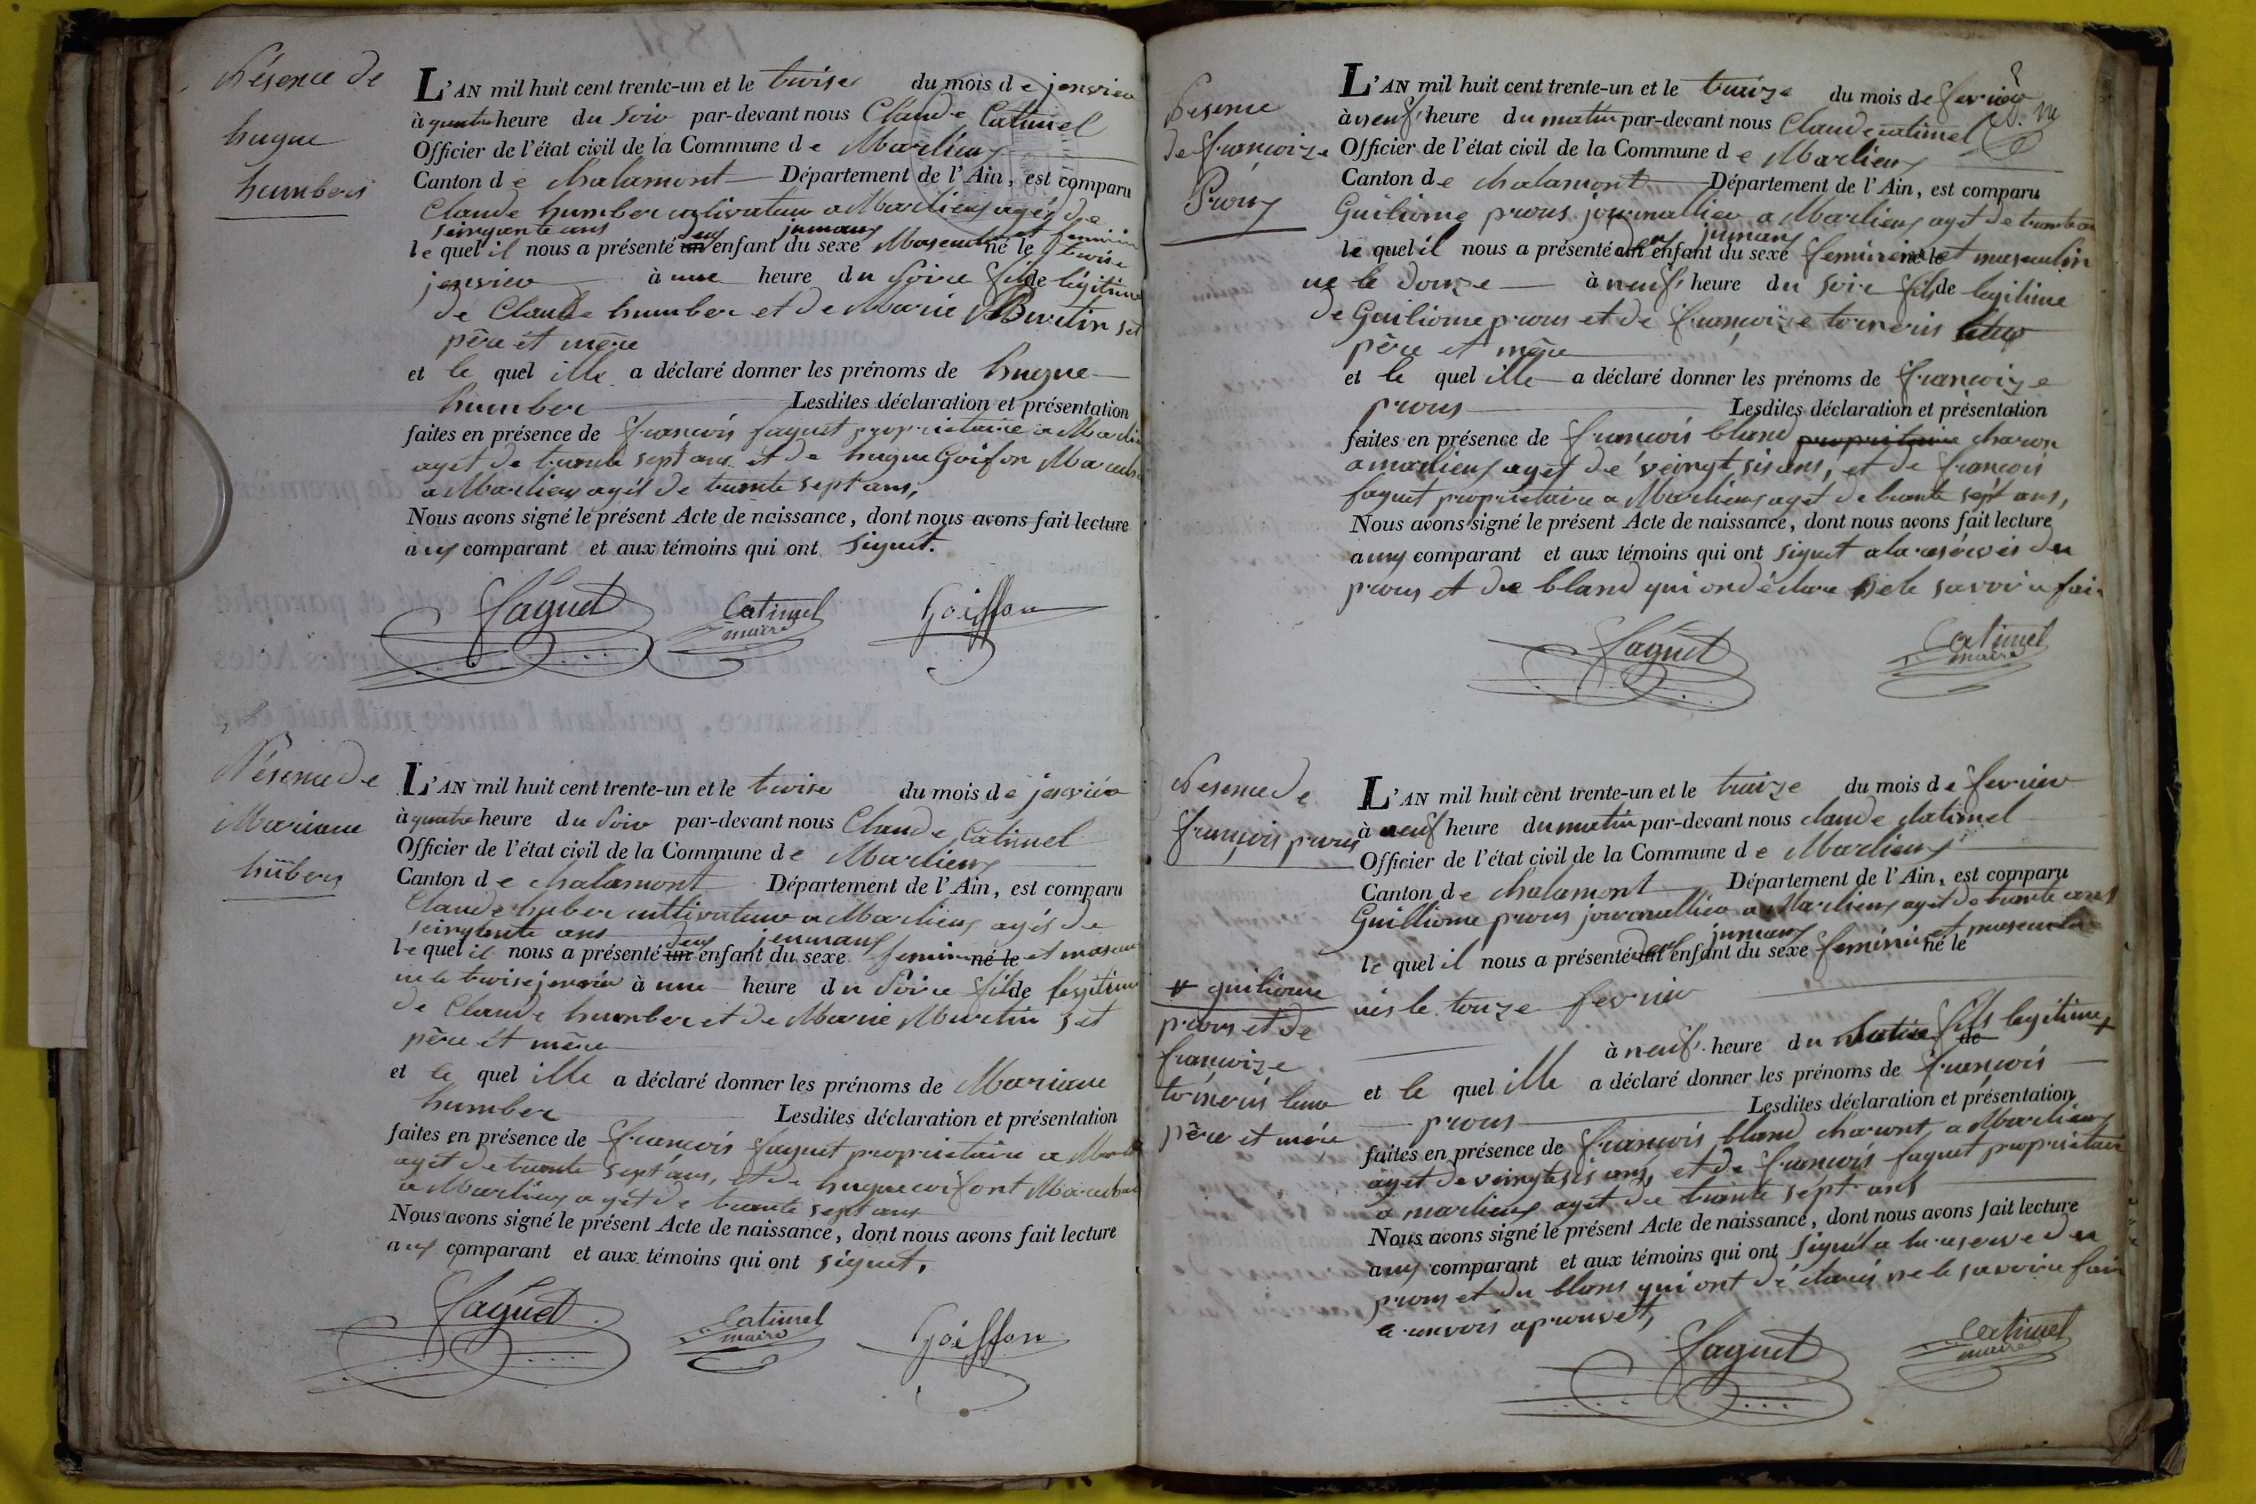 Présence de
hugue
humbers
L'AN mil huit cent trente-un et le treise du mois de jenvier
à quatre heure du soir par-devant nous Claude Catimel
Officier de l'état civil de la Commune de Marlieux
Canton de chalamont Département de l'Ain, est comparu
Claude humber cultivateur a Marlieux agés de
seinquante ans deux jumaux et feminin
le quel il nous a présenté un enfant du sexe Masculin né le treise
jenvier à une heure du Soire fils de légitime
de Claude humber et de Marie Murtin set
père et mère
et le quel ille a déclaré donner les prénoms de hugue
humber Lesdites déclaration et présentation
faites en présence de françois faguet propriétaire a Marlieu
aget de trente sept ans et de hugue Goifon Marechal
a Marlieux agét de trente sept ans,
Nous avons signé le présent Acte de naissance, dont nous avons fait lecture
aux comparant et aux témoins qui ont signet.
faguet Catimel Goiffon
maire
Nésence de
Mariane
hübers
L'AN mil huit cent trente-un et le treise du mois de jenvier
à quatre heure du Soir par-devant nous Claude Catimel
Officier de l'état civil de la Commune de Marlieux
Canton de chalamont Département de l'Ain, est comparu
Claude huber cultivateur a Marlieux agés de
seinquente ans deux jeumaux
le quel il nous a présenté un enfant du sexe feminin né le et mascu
ne le treise jenvier à une heure du Soire fils de legitime
de Claude humber et de Marie Murtin set
père et mère
et le quel ille a déclaré donner les prénoms de Mariane
humber Lesdites déclaration et présentation
faites en présence de françois faguet propriétaire a Marli
aget de trente sept ans, et de hugue coifont Marechal
a Marlieux aget de trente sept ans
Nous avons signé le présent Acte de naissance, dont nous avons fait lecture
aux comparant et aux témoins qui ont signet,
faguet Catimel Goiffon
maire
Nesence
de françoize
Proux
L'AN mil huit cent trente-un et le traize du mois de fevrier
à neuf heure du matin par-devant nous Claude catimel
Officier de l'état civil de la Commune de Marlieux
Canton de chalamont Département de l'Ain, est comparu
Guiliome prous journallier a Marlieux aget de trente an
deux jumaux
le quel il nous a présenté un enfant du sexe feminin né le et masculin
ne le douze à neuf heure du soire fils de legitime
de Guiliome prous et de françoize torneris leur
père et mère
et le quel ille a déclaré donner les prénoms de françoize
prous Lesdites déclaration et présentation
faites en présence de françois bland propriétaire charon
a marlieux aget de veingt sis ans, et de françois
faguet propriétaire a Marlieux aget de trente sept ans,
Nous avons signé le présent Acte de naissance, dont nous avons fait lecture
aux comparant et aux témoins qui ont signet a la reserves du
prous et du bland qui on déclare ne le savoir fair
faguet Catimel
maire
Nesence de
françois prous
L'AN mil huit cent trente-un et le traize du mois de fevrier
à neuf heure du matin par-devant nous claude Catimel
Officier de l'état civil de la Commune de Marlieux
Canton de chalamont Département de l'Ain, est comparu
Guilliome prous journallier a Marlieux aget de trente ans
jumaux
le quel il nous a présenté un enfant du sexe feminin et masculin né le
nés le touze fevrier
à neuf heure du fils legitime
de
guiliome
prous et de
françoize
torneris leur
père et mère
et le quel ille a déclaré donner les prénoms de françois
prous Lesdites déclaration et présentation
faites en présence de françois bland charont a Marlieux
aget de veingt sis ans, et de françois faguet propriétair
a marlieux aget de trente sept ans
Nous avons signé le présent Acte de naissance, dont nous avons fait lecture
aux comparant et aux témoins qui ont signét a la reserve du
prous et du blans qui ont déclarés ne le savoire fair
aprouvet,
faguet Catimel
maire